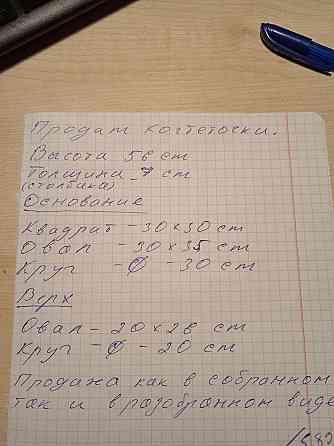 Продам когтеточки.
Высота 56 см
Толщина - 7 см
(столбика)
Основание
Квадрат - 30 х 30 см
Овал - 30 х 35 см
Круг - ∅ - 30 см
Верх
Овал - 20 х 28 см
Круг - ∅ - 20 см
Продажа как в собранном
так и в разобранном виде